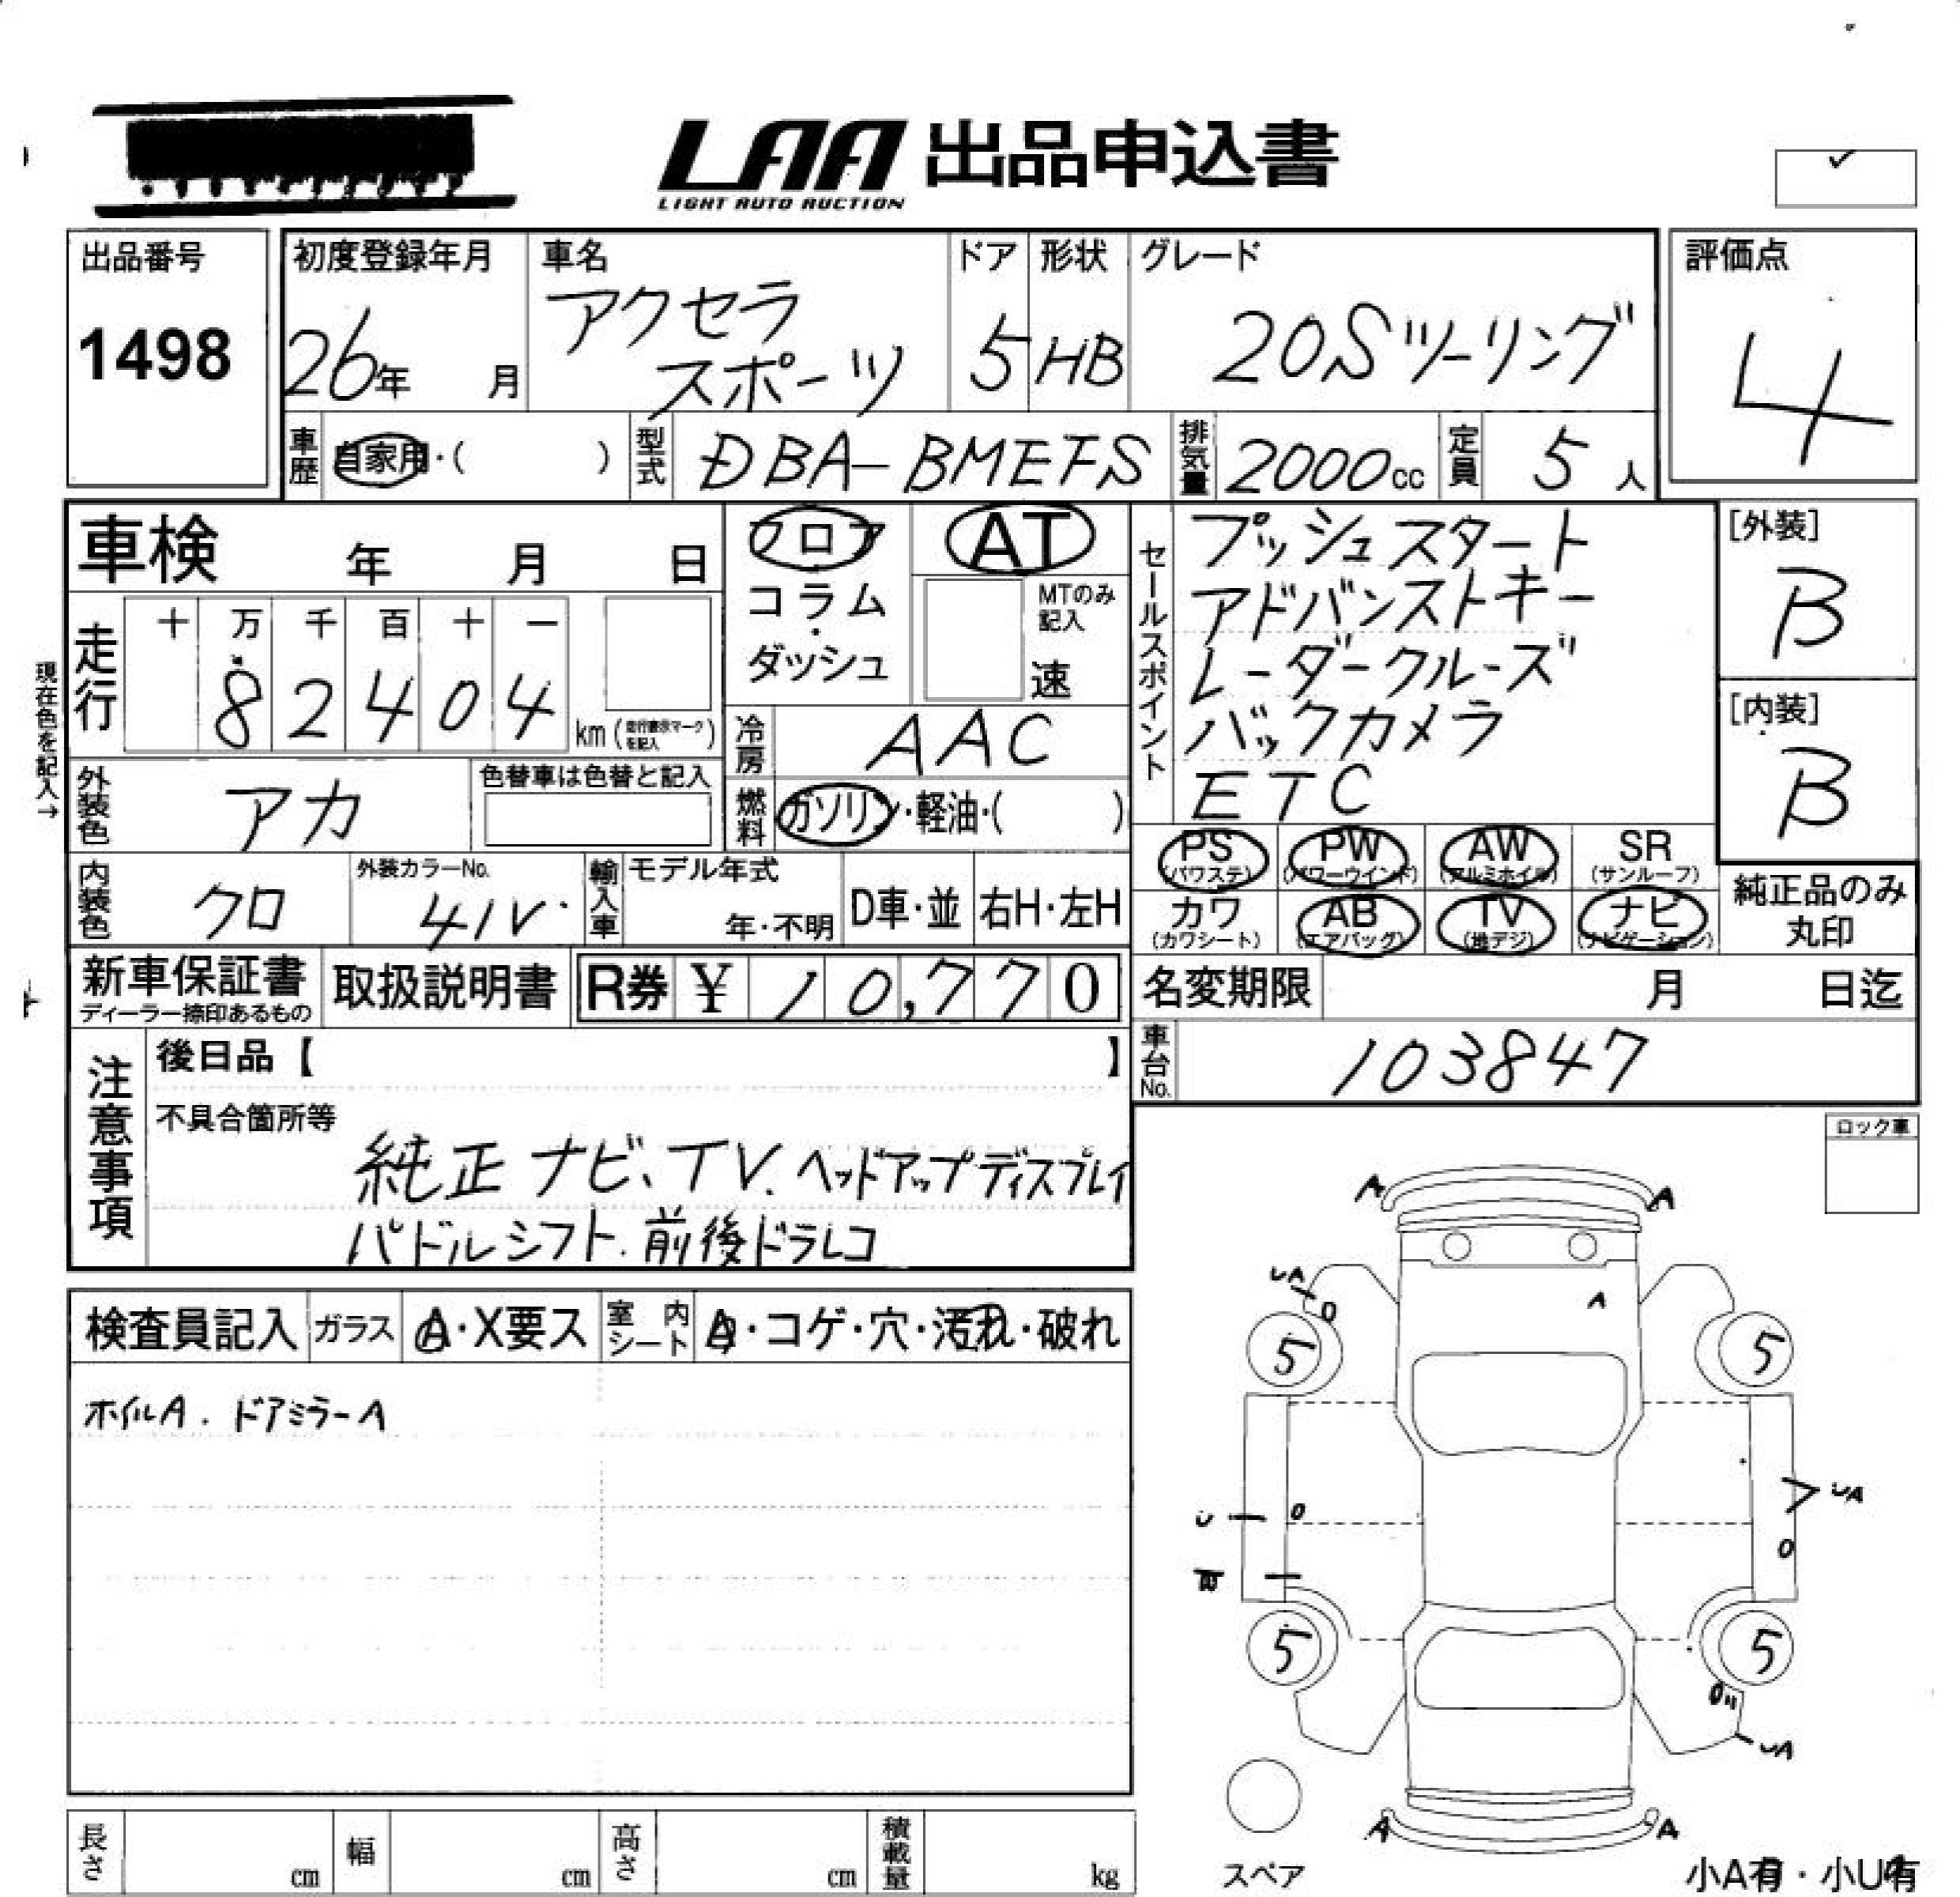 LAA 出品申込書
LIGHT AUTO AUCTION
出品番号
1498
初度登録年月
26年 月
車名
アクセラ
スポーツ
ドア
5
形状
HB
グレード
20Sツーリング
評価点
4
車歴 自家用・( )
型式 DBA-BMEFS
排気量 2000cc
定員 5人
車検 年 月 日
フロア
コラム・
ダッシュ
AT
MTのみ
記入
速
セールスポイント
プッシュスタート
アドバンストキー
レーダークルーズ
バックカメラ
ETC
[外装]
B
[内装]
B
現在色を記入→
走行
十 万 千 百 十 一
8 2 4 0 4
km(走行表示マークを記入)
冷房 AAC
外装色 アカ
色替車は色替と記入
燃料 ガソリン・軽油・( )
PS (パワステ)
PW (パワーウインド)
AW (アルミホイル)
SR (サンルーフ)
カワ (カワシート)
AB (エアバッグ)
TV (地デジ)
ナビ (ナビゲーション)
純正品のみ
丸印
内装色 クロ
外装カラーNo.
41V
輸入車
モデル年式
年・不明
D車・並
右H・左H
新車保証書
ディーラー捺印あるもの
取扱説明書
R券 ¥ 10,770
名変期限 月 日迄
車台No. 103847
注意事項
後日品【 】
不具合箇所等
純正ナビ、TV、ヘッドアップディスプレイ
パドルシフト、前後ドラレコ
ロック車
検査員記入
ガラス A・X要ス
室内シート A・コゲ・穴・汚れ・破れ
ホイルA . ドアミラーA
A A
UA
A
5 5
U
UA
W
5 5
UA
A A
スペア
小A有・小U有
長さ cm
幅 cm
高さ cm
積載量 kg